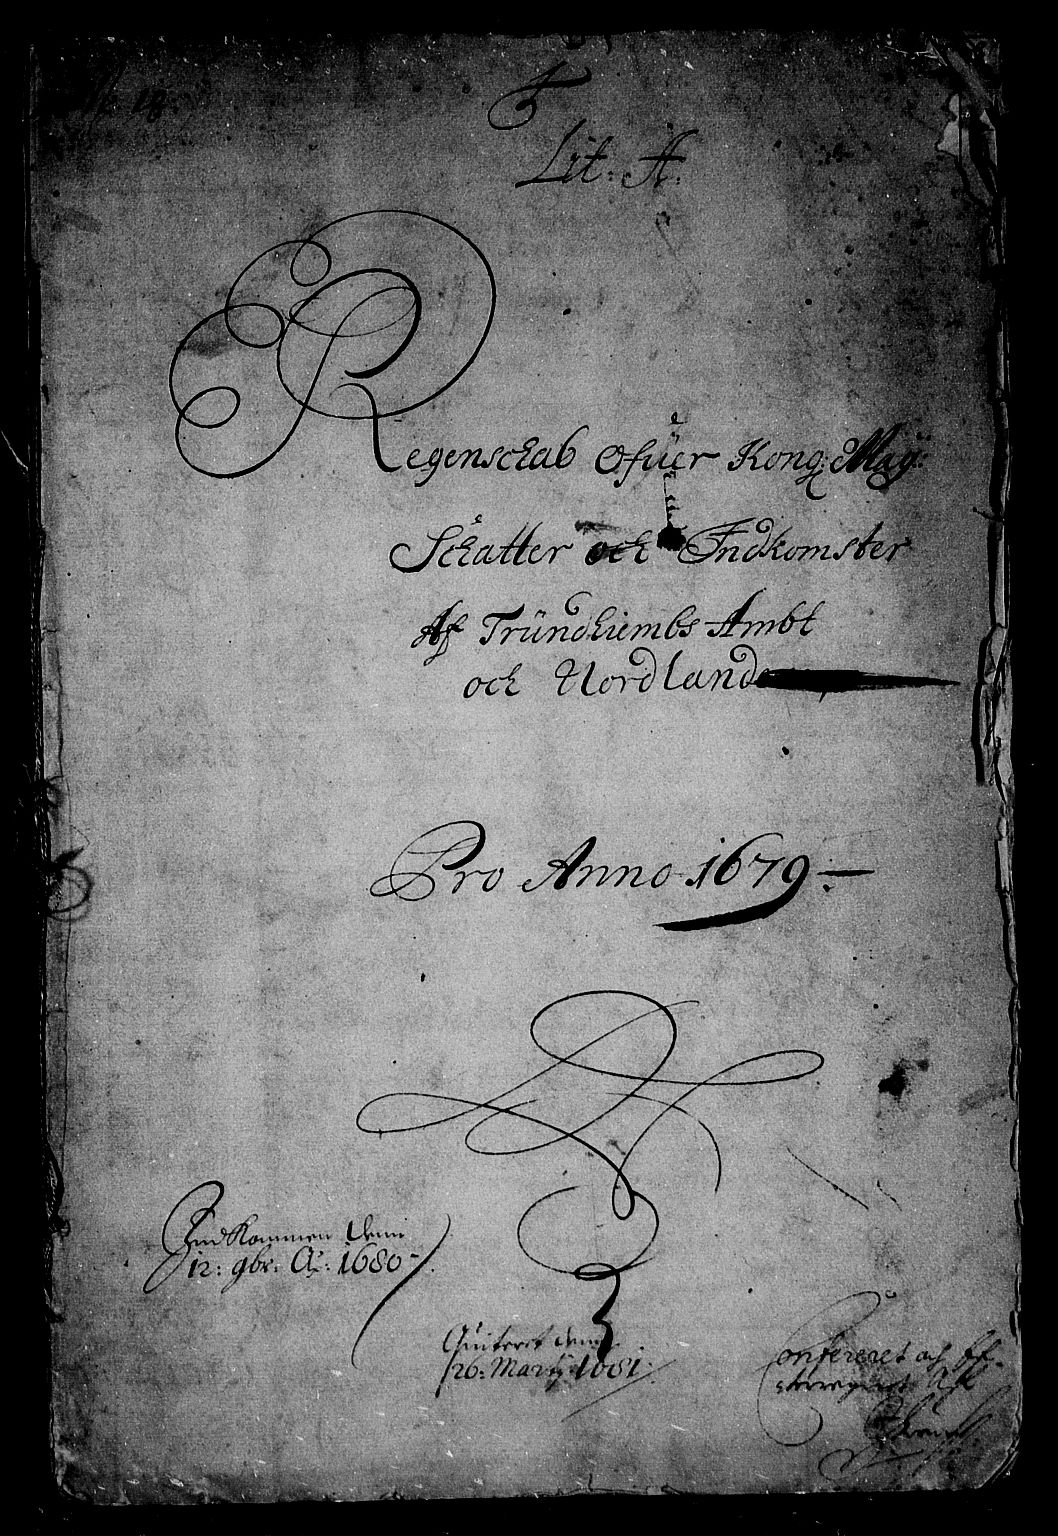 Lit: A:
Regenschab Ofüer Kong: May:
Schatter och Indkomster
Af Tründhiembs Ambt
och Nordland
Pro Anno 1679
Indkommen denn
12: 9br: Aº: 1680
Quiteret denn
26: Martÿ 1681
Confereret och